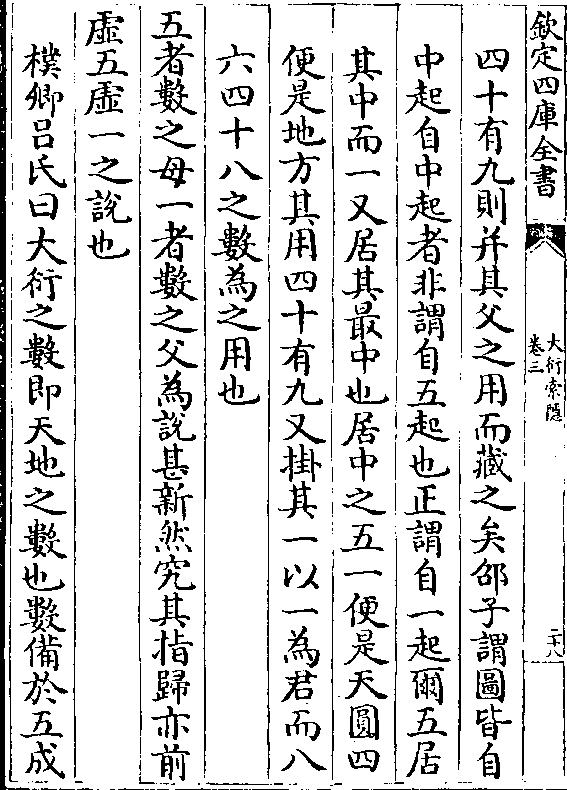 欽定四庫全書
大衍索隱
卷三
二十八
四十有九則并其父之用而藏之矣邵子謂圖皆自
中起自中起者非謂自五起也正謂自一起爾五居
其中而一又居其最中也居中之五一便是天圓四
便是地方其用四十有九又掛其一以一為君而八
六四十八之數為之用也
五者數之母一者數之父為說甚新然究其指歸亦前
虛五虛一之說也
樸卿吕氏曰大衍之數即天地之數也數備於五成